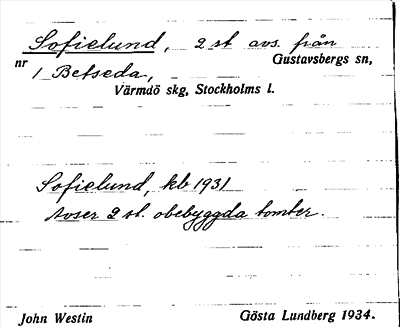 Sofielund, 2 st avs. från
nr Gustavsbergs sn,
1 Betseda,
Värmdö skg, Stockholms l.
Sofielund, kb 1931
Avser 2 st. obebyggda tomter.
John Westin Gösta Lundberg 1934.